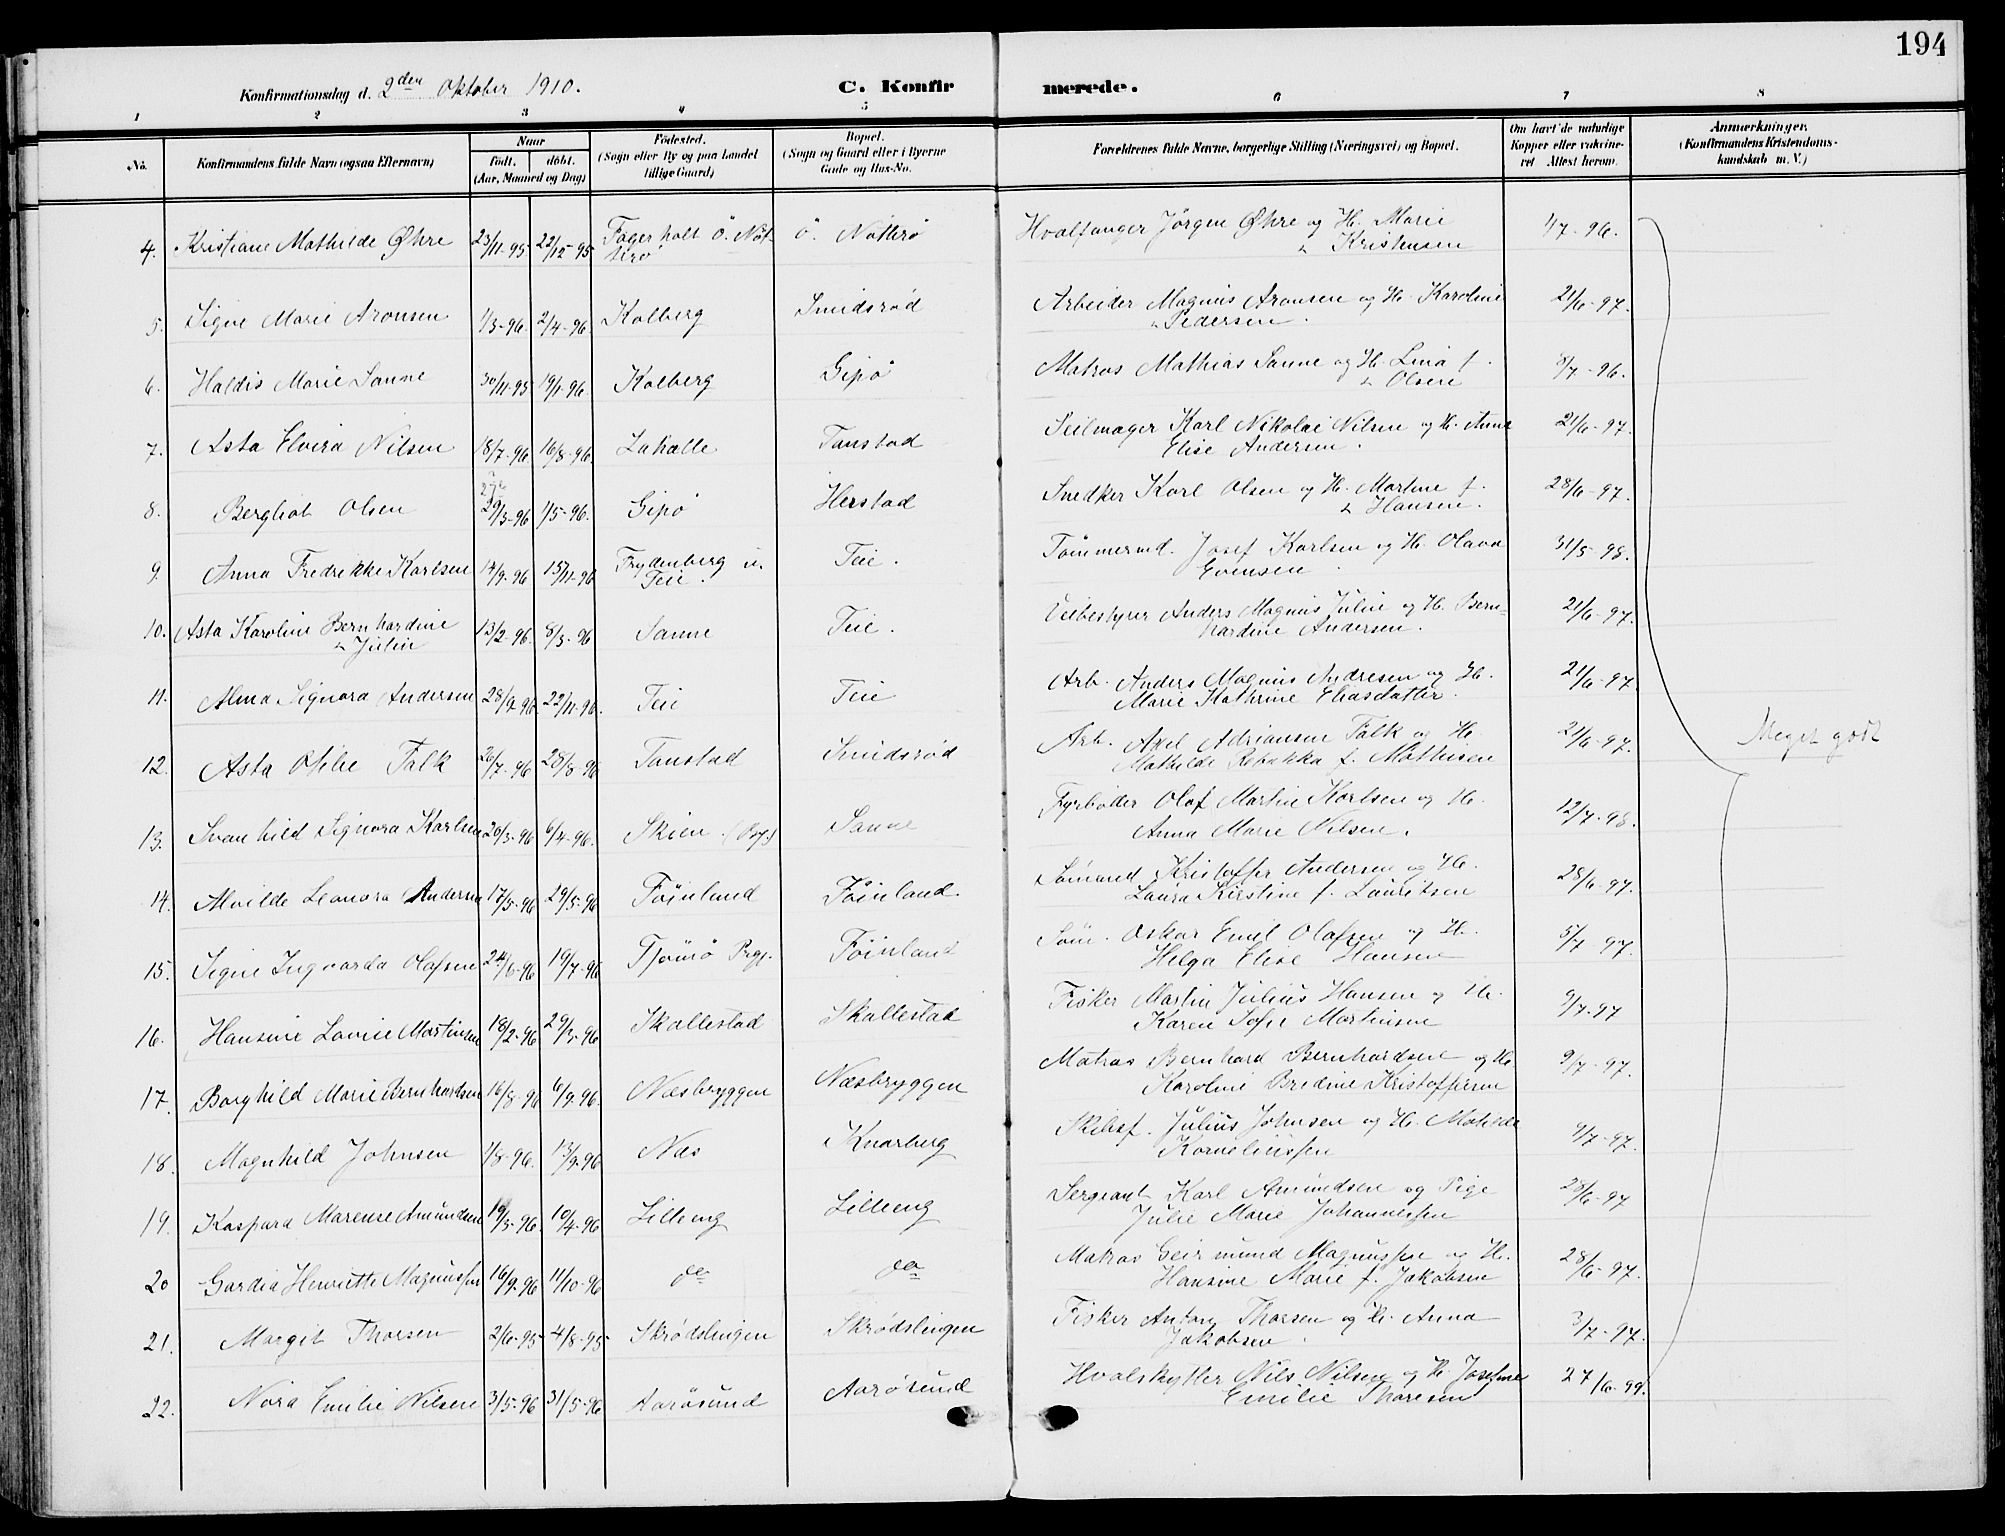 194
Konfirmationsdag d. 2den Oktober 1910.
C. Konfir
merede.
1 2 3 4 5 6 7 8
No.
Konfirmandens fulde Navn (ogsaa Efternavn)
Naar
født. døbt.
(Aar, Maaned og Dag)
Fødested.
(Sogn eller By og paa Landet
tillige Gaard)
Bopæl.
(Sogn og Gaard eller i Byerne
Gade og Hus-No.
Forældrenes fulde Navne, borgerlige Stilling (Næringsvei) og Bopæl.
Om havt de naturlige
Kopper eller vakcine-
ret Attest herom.
Anmærkninger.
(Konfirmandens Kristendoms-
kundskab m. V.)
4. Kristiane Mathilde Øhre 23/11-95 22/12-95 Fagerholt Ö. Nöt- Ö. Nötterö Hvalfanger Jörgen Øhre og H. Marie 1/7-96.
terö Kristensen
5. Signe Marie Aronsen 1/3-96 2/4-96 Kolberg Smidsrød Arbeider Magnus Aronsen og H. Karoline 21/6-97.
Pedersen.
6. Haldis Marie Sanne 30/11-95 19/1-96 Kolberg Gipø Matros Mathias Sanne og H. Lina f. 8/7-96.
Olsen
7. Asta Elvira Nilsen 18/7-96 16/8-96. Lahælle Tanstad Seilmager Karl Nikolai Nilsen og H. Anna 21/6-97.
Elise Andersen.
8. Bergliot Olsen 29/3-96 1/5-96. Gipø Herstad Snedker Karl Olsen og H. Martine f. 28/6-97.
Hansen.
9. Anna Fredrikke Karlsen 14/9-96 15/11-96 Frydenberg u. Teie. Tømmermd. Josef Karlsen og H. Olava 31/5-98.
Teie. Evensen
10. Asta Karoline Bernhardine 13/2-96. 8/3-96 Sanne Teie. Veibestyrer Anders Magnus Julin og H. Bern- 21/6-97.
Julin hardine Andersen.
11. Alma Signora Andersen 28/9-96 22/11-96. Teie Teie Arb. Anders Magnus Andresen og H. 21/6-97.
Marie Kathrine Eliasdatter.
12. Asta Falk 26/7-96 28/8-96 Tanstad Smidsrød Arb. Axel Adriansen Falk og H. 21/6-97.
Mathilde Rebekka f. Mathisen
Meget godt
13. Svanhild Signora Karlsen 26/3-96 6/4-96. Skien (By) Sanne Fyrbøder Olaf Martin Karlsen og H. 12/7-98.
Anna Marie Nilsen.
14. Alvilde Leonora Andersen 17/5-96 29/5-96 Føinland Føinland. Sömand Kristoffer Andersen og H. 28/6-97.
Laura Kirstine f. Lauritsen
15. Signe Ingvarda Olafsen 24/6-96 19/7-96 Tjømø Prgj. Føinland Søm. Oskar Emil Olafsen og H. 5/7-97.
Helga Elise Hansen
16. Hansine Lovise Martinsen 18/2-96 29/3-96 Skallestad Skallestad Fisker Martin Julius Hansen og H. 9/7-97
Karen Sofie Martinsen
17. Borghild Marie Bernhardsen 16/8-96 6/9-96. Næsbryggen Næsbryggen Matros Bernhard Bernhardsen og H. 9/7-97.
Karoline Bredine Kristoffersen
18. Magnhild Johnsen 1/8-96. 13/9-96 Næs Knarberg Skibsf. Julius Johnsen og H. Matilde 9/7-97.
Korneliussen
19. Kaspara Marense Amundsen 19/3-96. 10/4-96 Lilleeng Lilleeng Sergeant Karl Amundsen og Pige 28/6-97
Julie Marie Johannessen
20 Gardia Henriette Magnussen 16/9-96 11/10-96 do do Matros Geirmund Magnussen og H. 28/6-97.
Hansine Marie f. Jakobsen
21. Margit Thorsen 2/6-95 4/8-95 Skrødslingen Skrødslingen Fisker Anton Thorsen og H. Anna 3/7-97.
Jakobsen.
22. Nora Emilie Nilsen 3/5-96 31/5-96 Aarøsund Aarøsund Hvalskytter Nils Nilsen og H. Josefine 27/6-99.
Emilie Thoresen